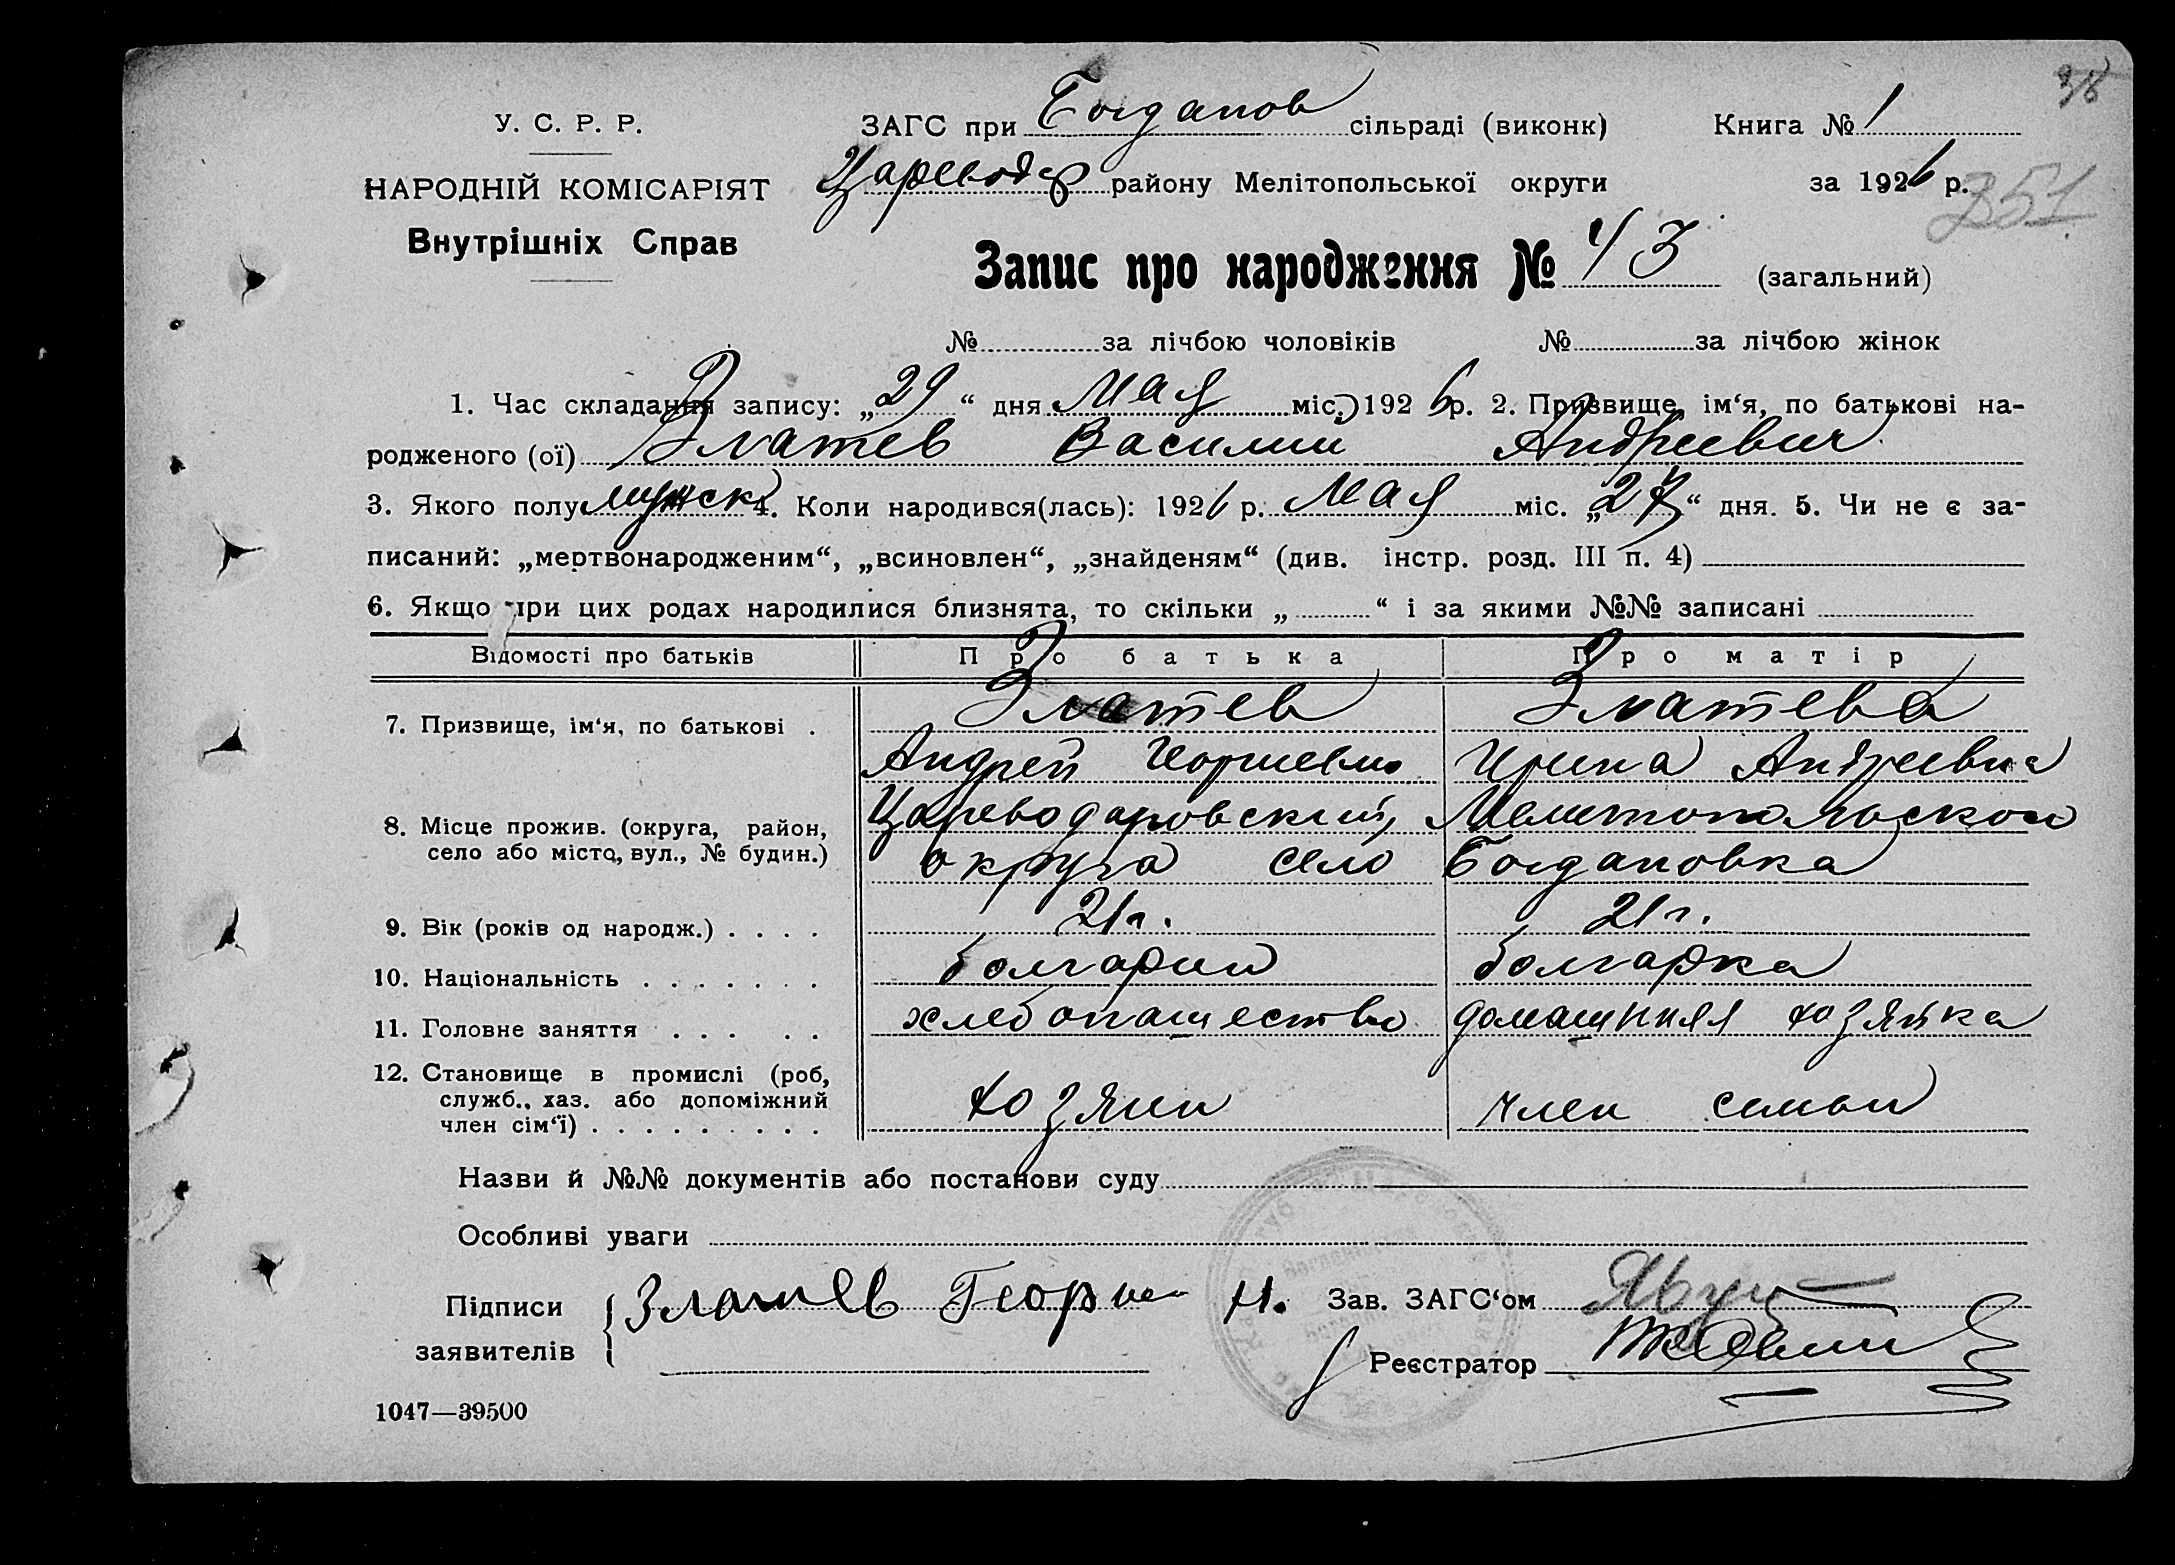 38
У. С. Р. Р.
ЗАГС при Богданов сільраді (виконк) Книга № 1
НАРОДНІЙ КОМІСАРІЯТ
Царевод р району Мелітопольської округи за 1926 р.
351
Внутрішніх Справ
Запис про народження № 43 (загальний)
№ за лічбою чоловіків № за лічбою жінок
1. Час складання запису: „29“ дня Мая міс. 1926 р. 2. Призвище, ім‘я, по батькові на-
родженого (ої) Златев Василий Андреевич
3. Якого полу мужск 4. Коли народився(лась): 1926 р. Мая міс. „27“ дня. 5. Чи не є за-
писаний: „мертвонародженим“, „всиновлен“, „знайденям“ (див. інстр. розд. III п. 4)
6. Якщо при цих родах народилися близнята, то скільки „ “ і за якими №№ записані
Відомості про батьків Про батька Про матір
7. Призвище, ім‘я, по батькові . Златев Златева
Андрей Георгиевич Ирина Андреевна
8. Місце прожив. (округа, район, село або місто, вул., № будин.) Цареводаровский, Мелитопольской
округа село Богдановка
9. Вік (років од народж.) . . . . 21 г. 21 г.
10. Національність . . . . . . . болгарин болгарка
11. Головне заняття . . . . . хлебопашество домашняя хозяйка
12. Становище в промислі (роб,
служб., хаз. або допоміжний
член сім‘ї) . . . . . . . . . хозяин член семьи
Назви й №№ документів або постанови суду
Особливі уваги
Підписи заявителів Златев Георги Н. Зав. ЗАГС‘ом
Реєстратор
1047—39500